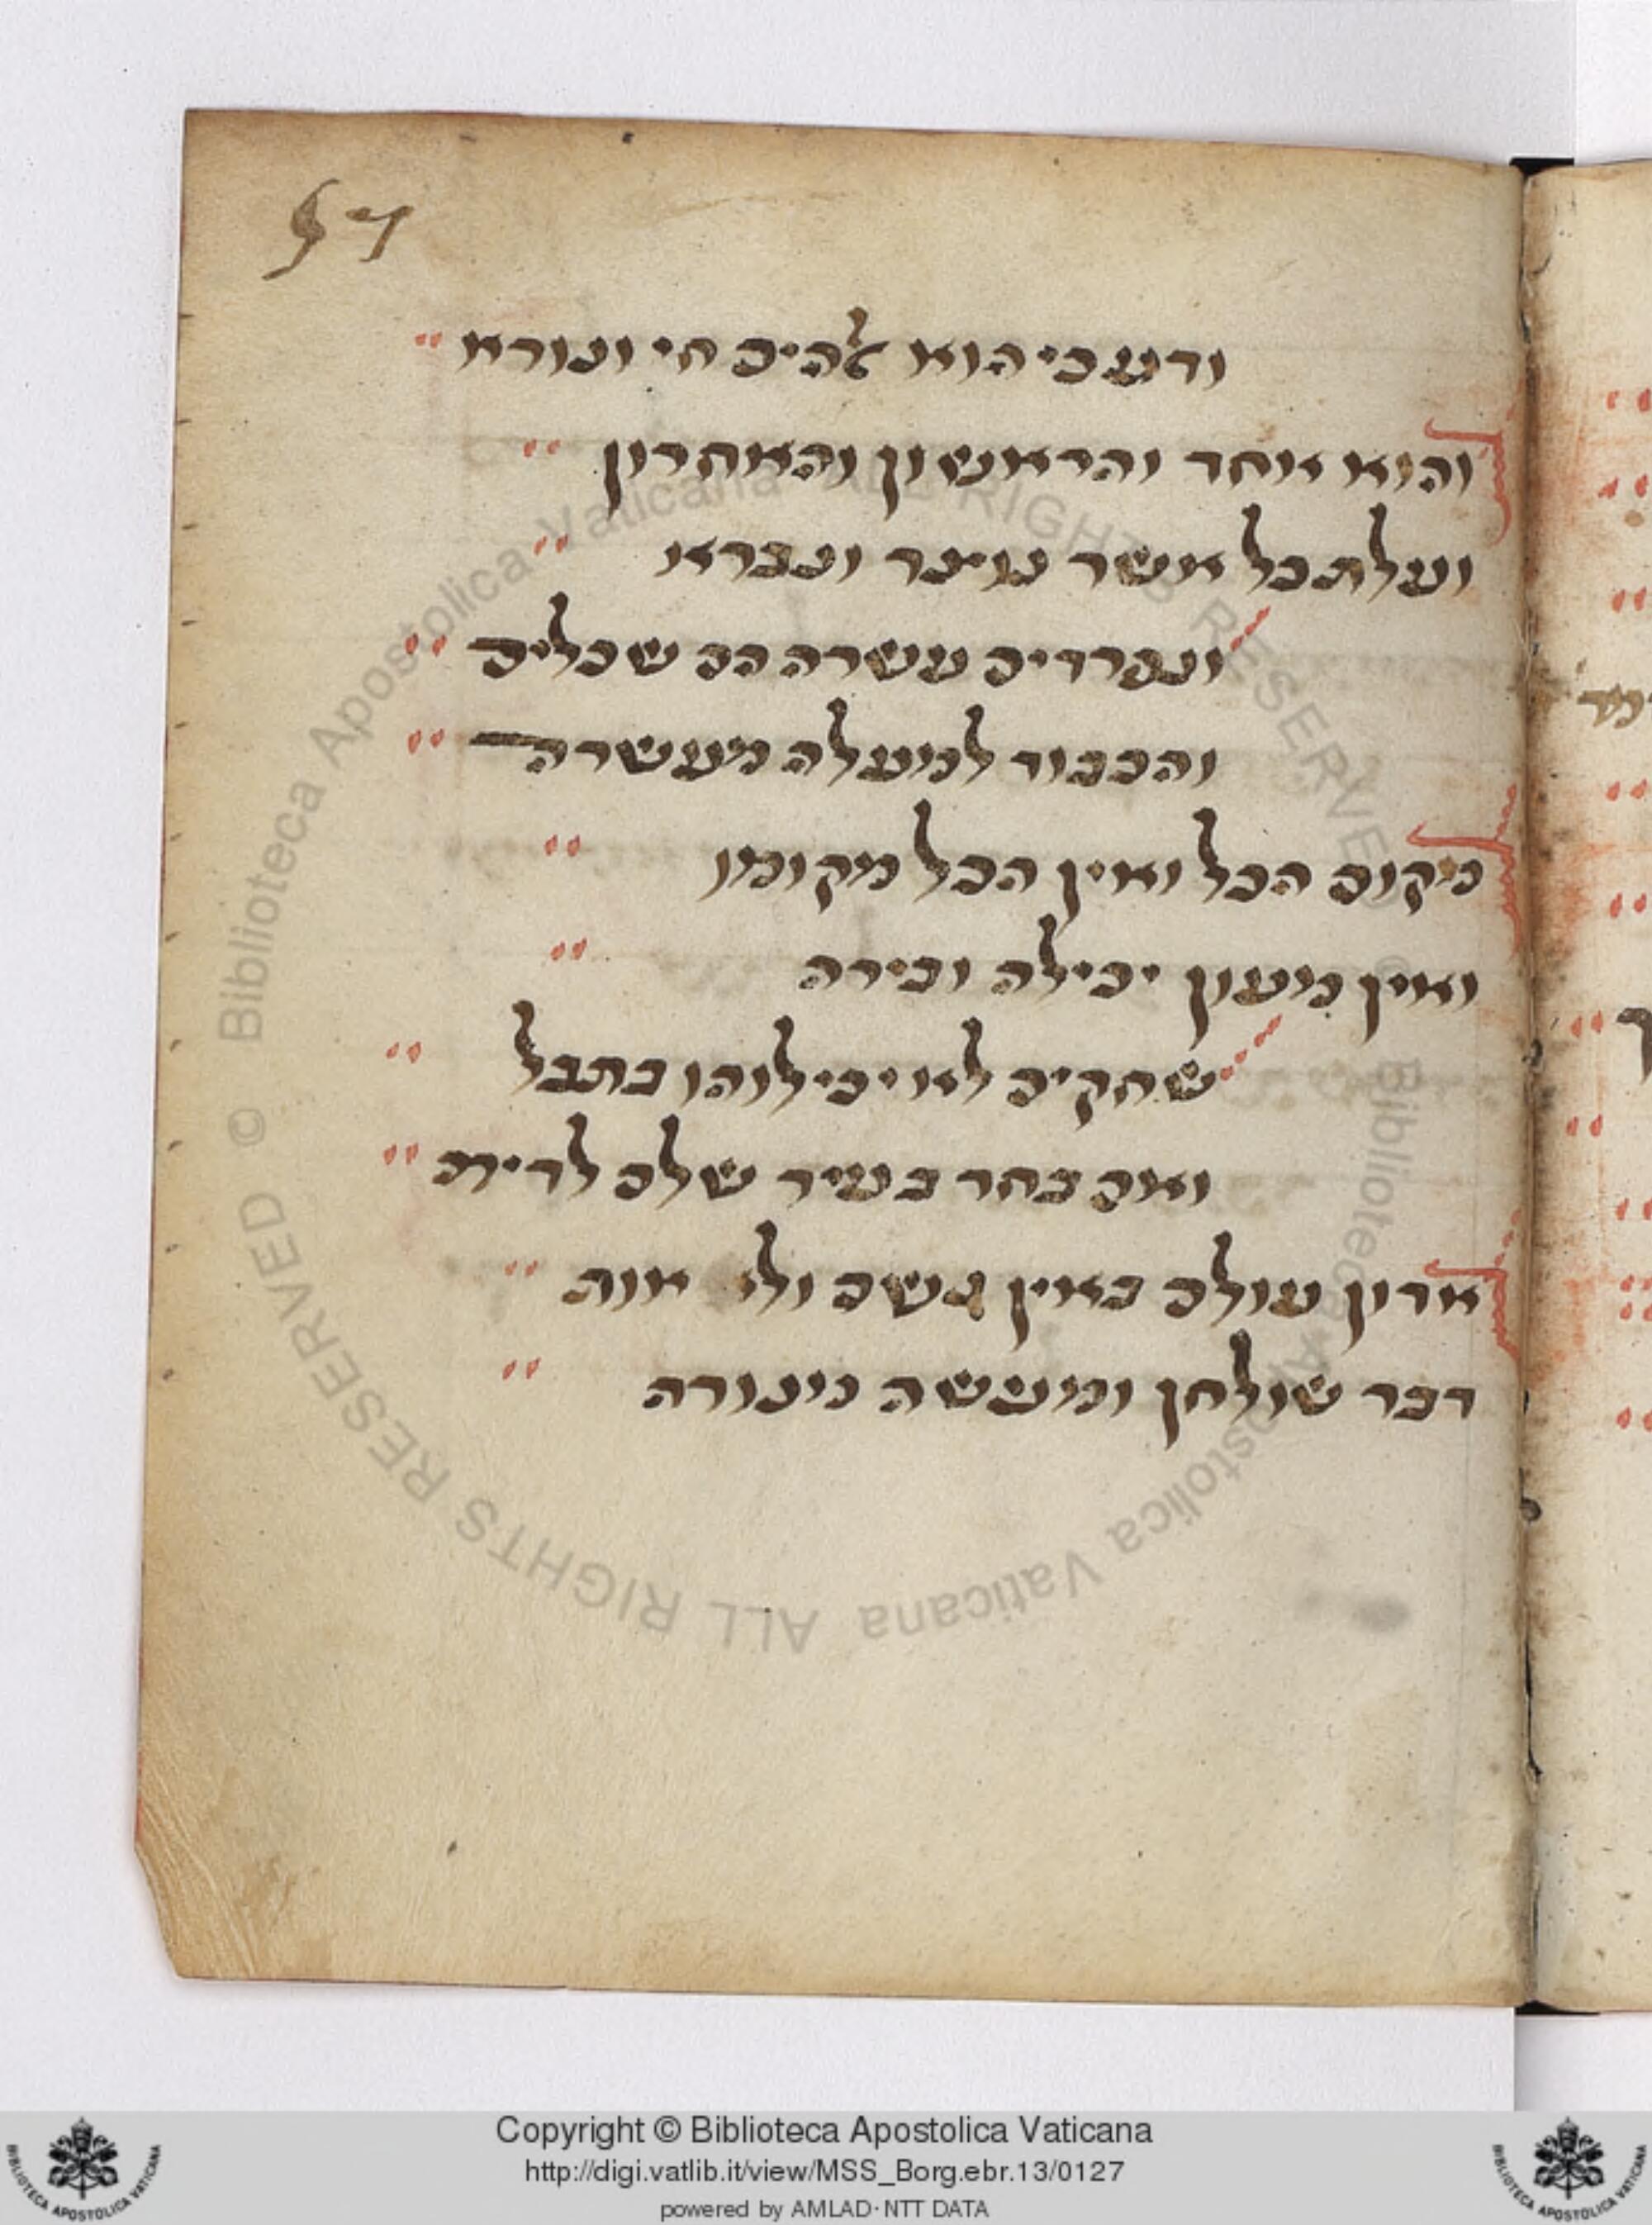 57
ודע כי הוא אלהים חי ונורא
והוא אחד והראשון והאחרון
ועלת כל אשר נוצר ונברא
ונפרדים עשרה הם שכלים
והכבוד למעלה מעשרה
מקום הכל ואין הכל מקומו
ואין מעון יכילה ובירה
שחקים לא יכילוהו בתבל
ואם בחר בעיר שלם לדירה
אדון עולם באין גשם ולו אות
דבר שולחן ומעשה מנורה
© Biblioteca Apostolica Vaticana ALL RIGHTS RESERVED © Biblioteca Apostolica Vaticana ALL RIGHTS RESERVED
Copyright © Biblioteca Apostolica Vaticana
http://digi.vatlib.it/view/MSS_Borg.ebr.13/0127
powered by AMLAD·NTT DATA
BIBLIOTECA APOSTOLICA VATICANA
BIBLIOTECA APOSTOLICA VATICANA